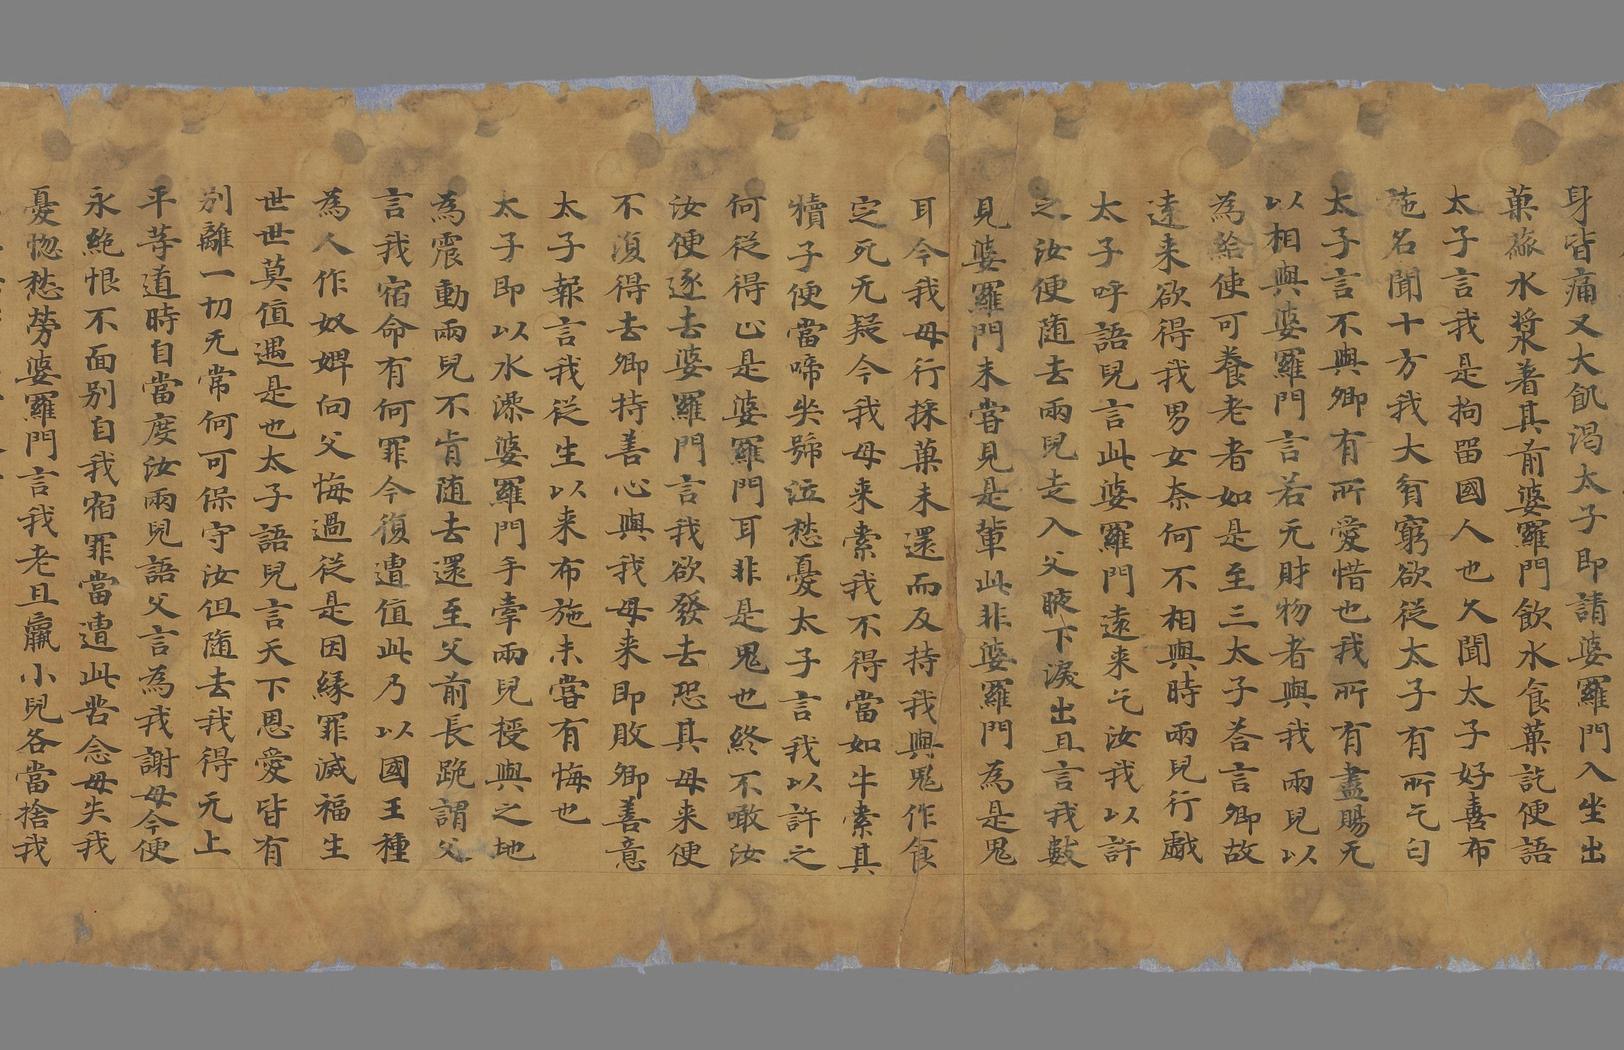 身皆痛又大飢渴太子即請婆羅門入坐出
菓蓏水漿著其前婆羅門飲水食菓訖便語
太子言我是拘留國人也久聞太子好喜布
施名聞十方我大貧窮欲從太子有所乞匃
太子言不與卿有所愛惜也我所有盡賜无
以相與婆羅門言若无財物者與我兩兒以
為給使可養老者如是至三太子荅言卿故
遠来欲得我男女奈何不相與時兩兒行戲
太子呼語兒言此婆羅門遠来乞汝我以許
之汝便随去兩兒走入父腋下淚出且言我數
見婆羅門未嘗見是軰此非婆羅門為是鬼
耳今我母行採菓未還而反持我與鬼作食
定死无疑今我母来索我不得當如牛索其
犢子便當啼哭號泣愁憂太子言我以許之
何從得止是婆羅門耳非是鬼也終不噉汝
汝便逐去婆羅門言我欲發去恐其母来便
不復得去卿持善心與我母来即敗卿善意
太子報言我從生以来布施未嘗有悔也
太子即以水澡婆羅門手牽兩兒授與之地
為震動兩兒不肯随去還至父前長跪謂父
言我宿命有何罪今復遭值此乃以國王種
為人作奴婢向父悔過從是因緣罪滅福生
世世莫值遇是也太子語兒言天下恩愛皆有
別離一切无常何可保守汝但随去我得无上
平等道時自當度汝兩兒語父言為我謝母今便
永絶恨不面别自我宿罪當遭此苦念母失我
憂惚愁勞婆羅門言我老且羸小兒各當捨我